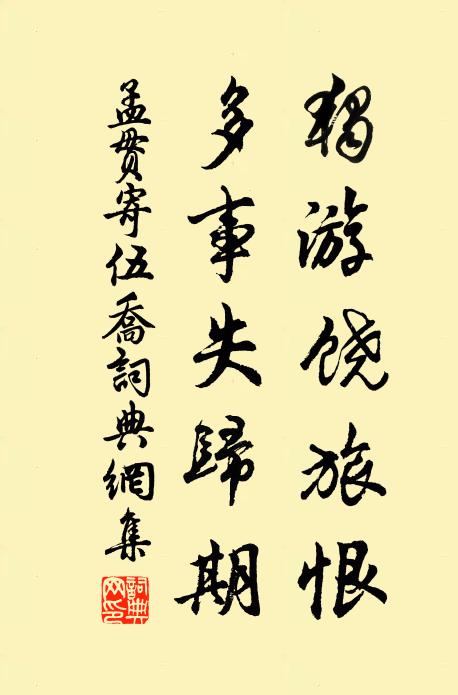 独游饶旅恨
多事失歸期
孟贯寄伍喬詞典網集
詞典網印